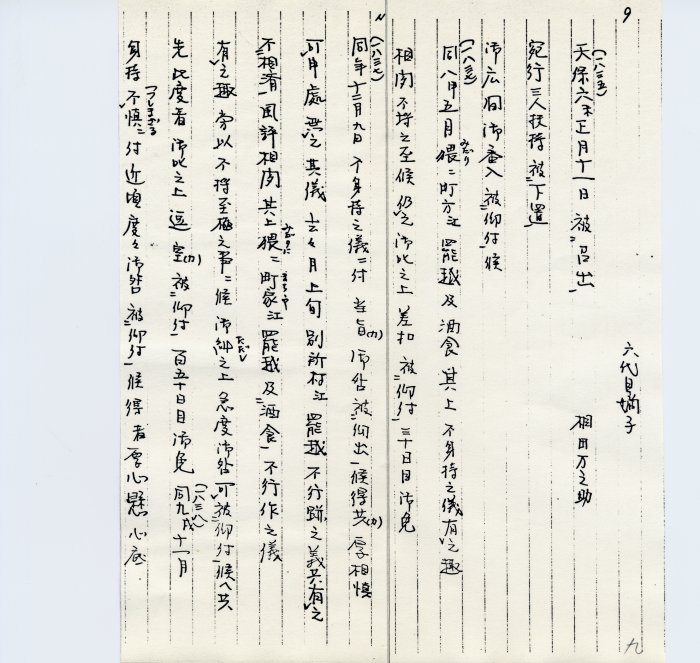 9
六代目嫡子
相田万之助
(一八三五)
天保六未正月十一日被召出
宛行三人扶持被下置
御広間御番入被仰付候
(一八三七)
同八申五月猥ニ町方江罷越及酒食其上不身持之儀有之趣
みだり
相聞不埒之至候仍之御叱之上差扣被仰付三十日目御免
(一八三七)
同年十二月九日不身持之儀ニ付 御咎被仰出候得共厚相慎
可申處無之其儀去ル月上旬別所村江罷越不行跡之義共有之
不相済風評相聞其上猥ニ町家江罷越及酒食不行作之儀
みだりに
有之趣旁以不埒至極之事ニ候御糾之上急度御咎可被仰付候へ共
ただし
先此度者御叱之上逼塞被仰付百五十日目御免同九戌十一月
(一八三八)
身持不慎ニ付近頃度々御咎被仰付候得者厚心懸心底
九